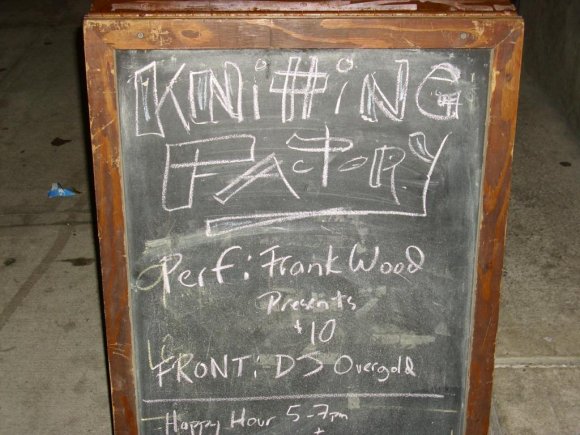 KNiTTiNG
FACTORY
Perf: Frank Wood
Presents
$10
FRONT: DJ Overgold
Happy Hour 5-7pm